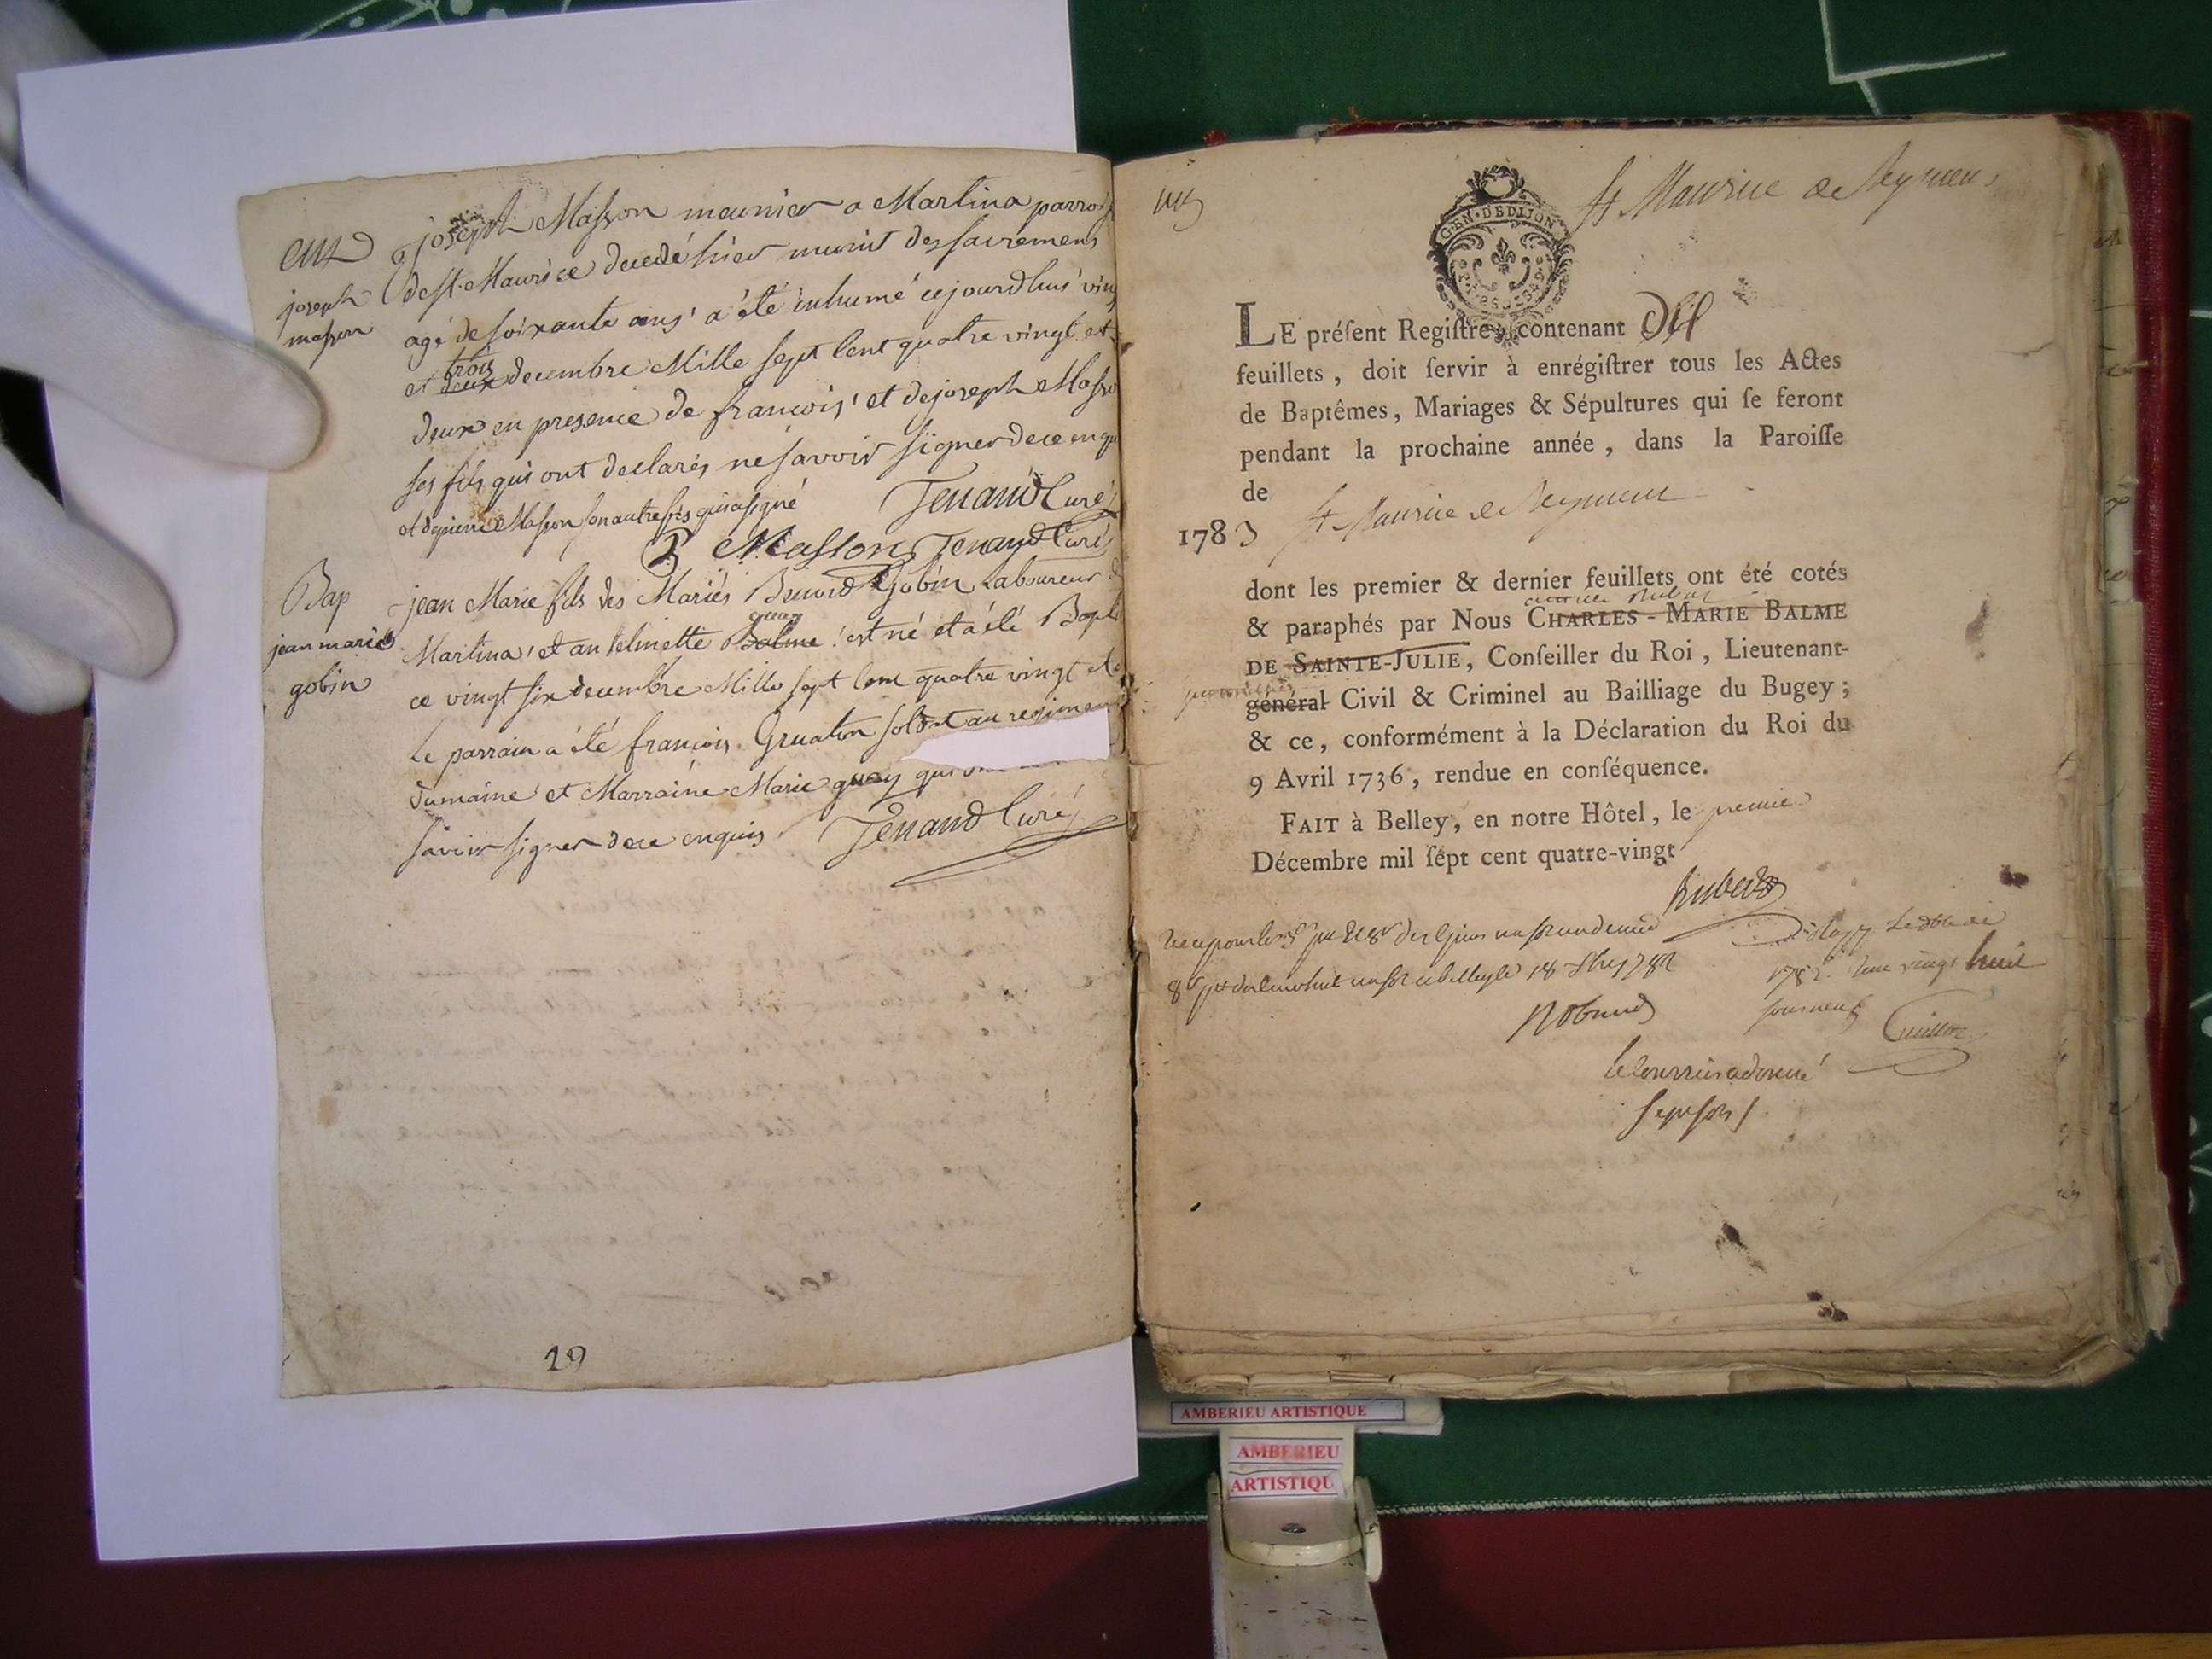 ent
joseph
masson
joseph Masson meunier a Martina parrois
de st. Maurice decedé hier munit des sacremens
agé de soixante ans a été inhumé cejourdhui vin
trois
et deux decembre Mille sept Cent quatre vingt et
deux en presence de francois et de joseph Masso
ses fils qui ont declarés ne savoir signer de ce enqu
et de pierre Masson son autre fils qui a signé Tenand Curé
P Masson Tenand Curé
Bap
jean marie
gobin
jean Marie fils des Mariés Gobin Laboureur
guey
Martina et antelmette Balme est né et a été Bapti
ce vingt six decembre Mille sept Cent quatre vingt et d
Le parrain a été francois Gruaton soldat au regiment
dumaine et Marraine Marie guey qui
savoir signer de ce enquis Tenand Curé
19
St Maurice de Reymens
GEN·DEDIJON
LE préſent Regiſtre, contenant dix
feuillets, doit ſervir à enrégiſtrer tous les Actes
de Baptêmes, Mariages & Sépultures qui ſe feront
pendant la prochaine année, dans la Paroiſſe
de
1783 St Maurice de Reymens
dont les premier & dernier feuillets ont été cotés
& paraphés par Nous CHARLES-MARIE BALME
DE SAINTE-JULIE, Conſeiller du Roi, Lieutenant-
général Civil & Criminel au Bailliage du Bugey;
& ce, conformément à la Déclaration du Roi du
9 Avril 1736, rendue en conſéquence.
FAIT à Belley, en notre Hôtel, le premier
Décembre mil ſept cent quatre-vingt
huit
sous neuf
Guillon
le courrier a donné
sept sols
AMBERIEU ARTISTIQUE
AMBERIEU
ARTISTIQU